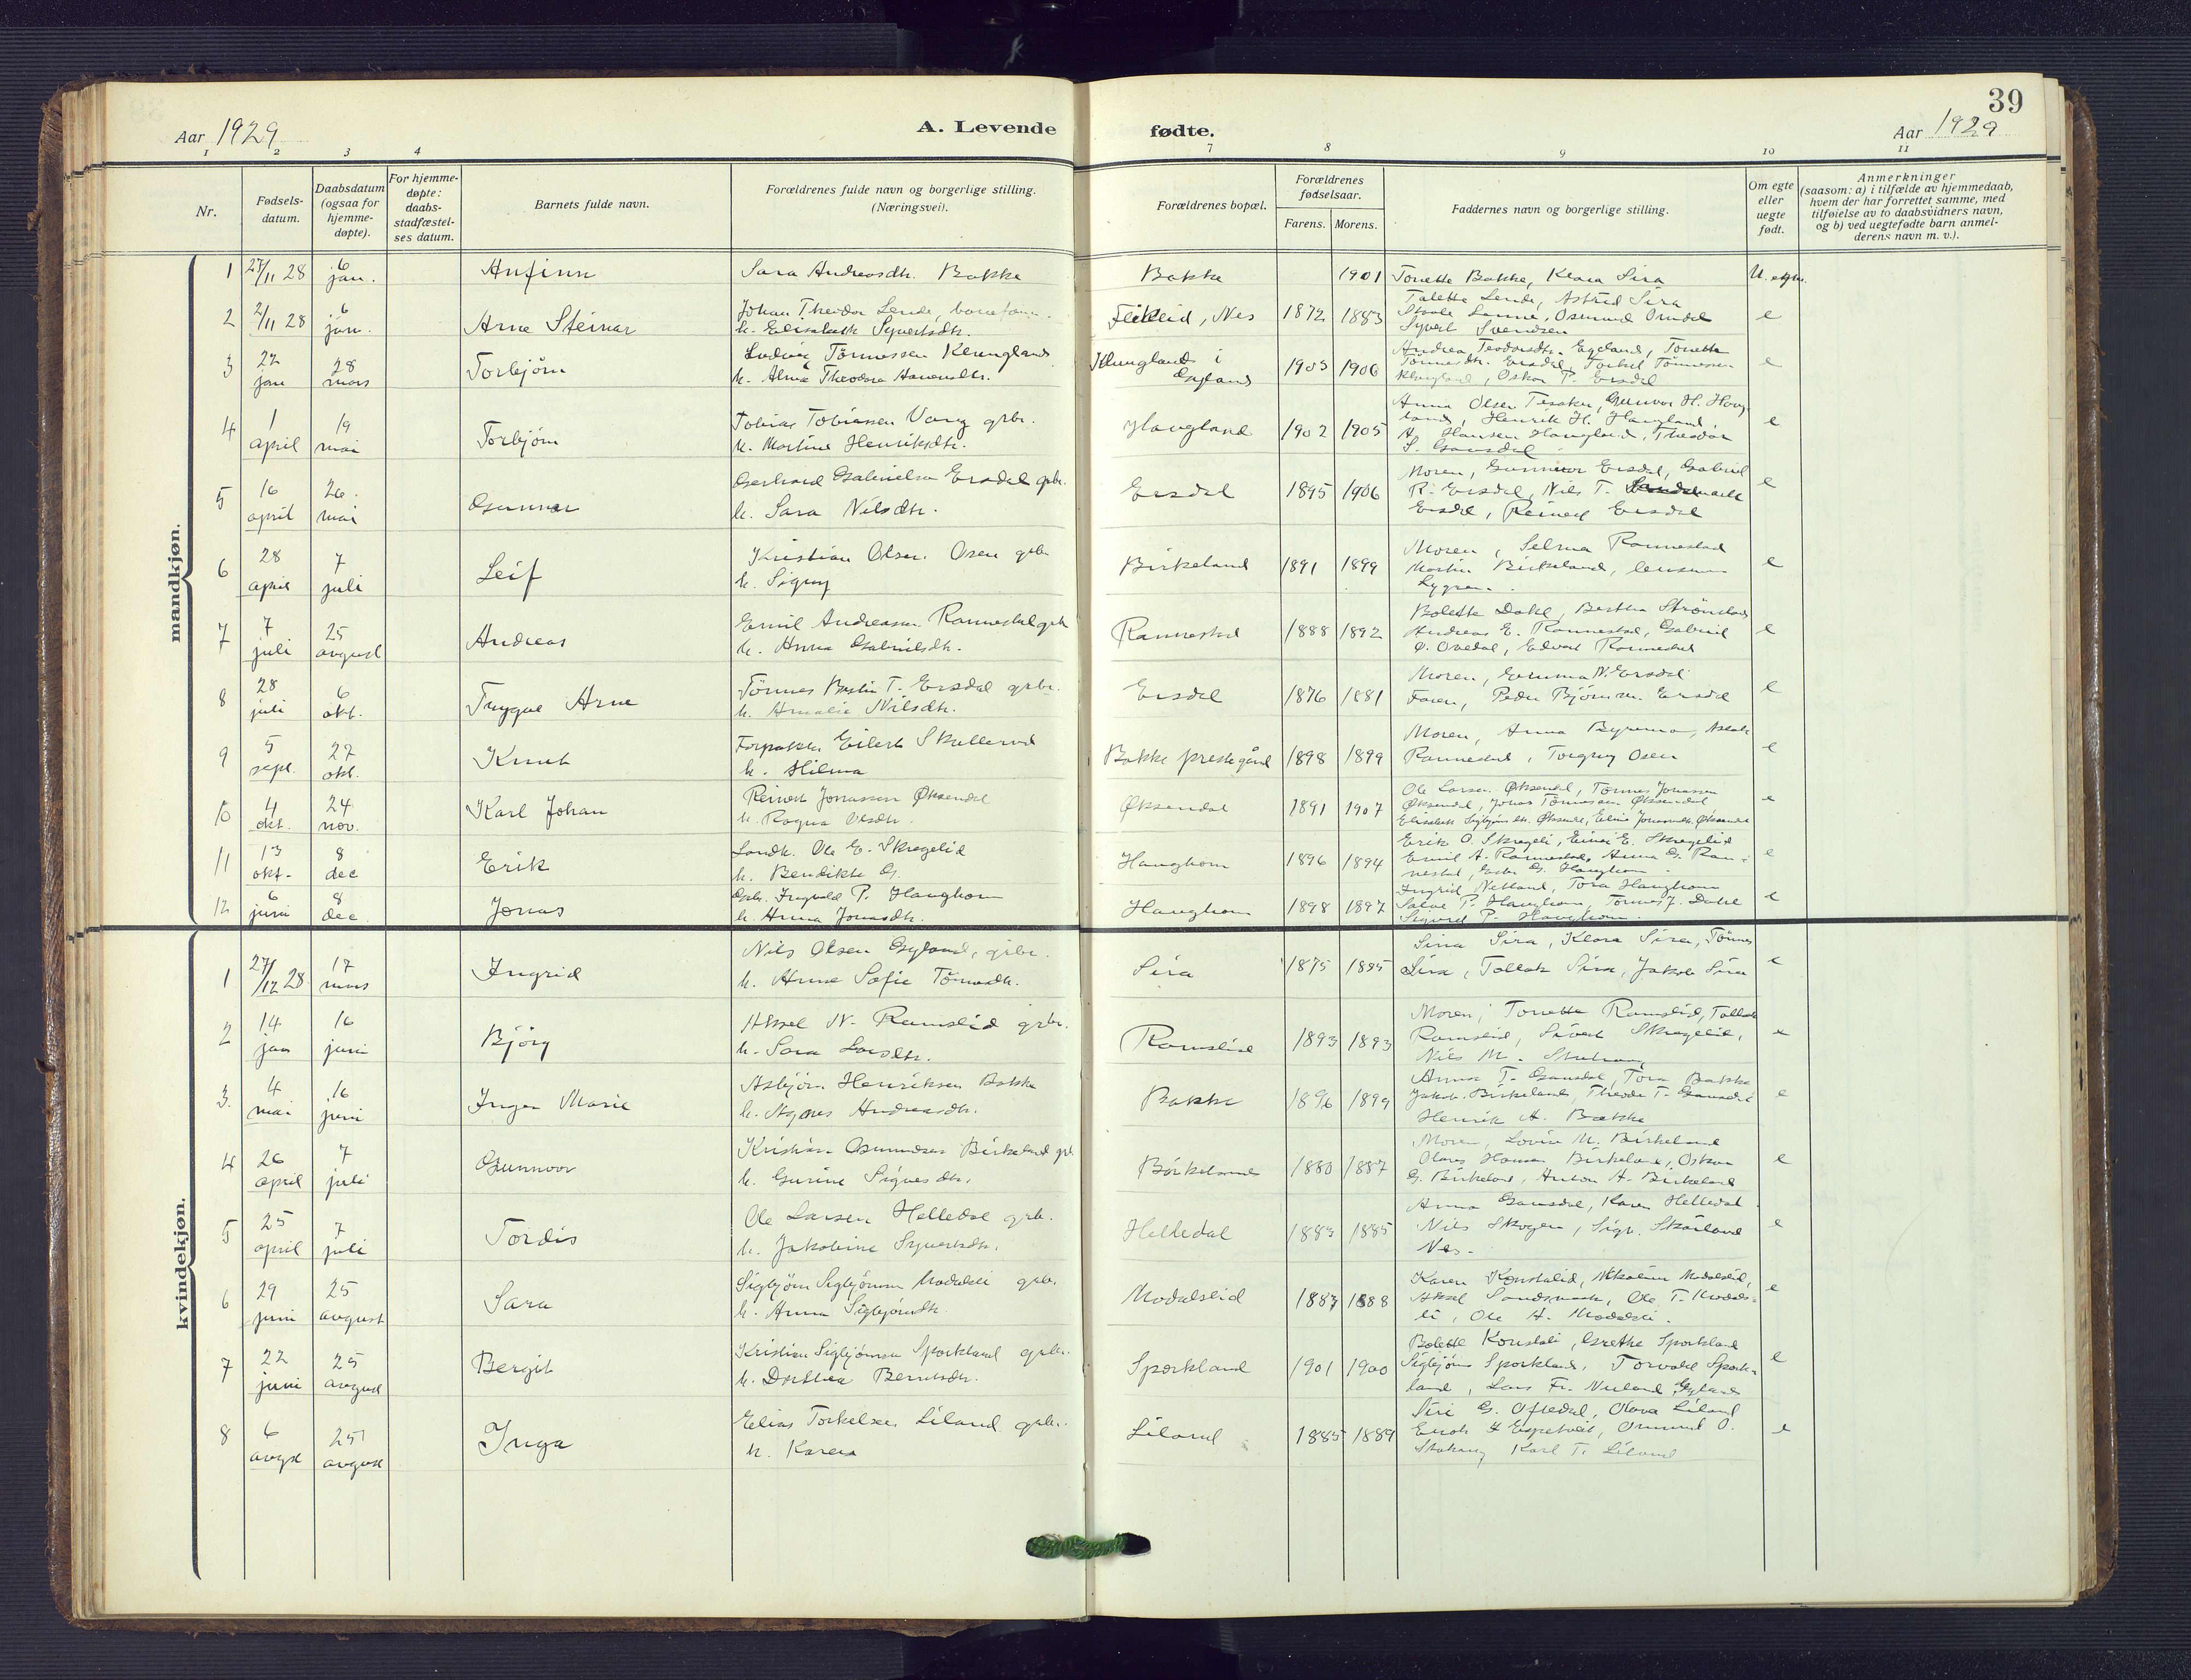 39
Aar 1929
A. Levende
fødte.
Aar 1929
1 2 3 4 7 8 9 10 11
Nr.
Fødsels-
datum.
Daabsdatum
(ogsaa for
hjemme-
døpte).
For hjemme-
døpte:
daabs-
stadfæstel-
ses datum.
Barnets fulde navn.
Forældrenes fulde navn og borgerlige stilling.
(Næringsvei).
Forældrenes bopæl.
Forældrenes
fødselsaar.
Farens. Morens.
Faddernes navn og borgerlige stilling.
Om egte
eller
uegte
født.
Anmerkninger
(saasom: a) i tilfælde av hjemmedaab,
hvem der har forrettet samme, med
tilføielse av to daabsvidners navn,
og b) ved uegtefødte barn anmel-
derens navn m. v.).
mandkjøn.
1 27/11 28 6 jan. Anfinn Sara Andreasdtr. Bakke Bakke 1901 Tonette Bakke, Klara Sira
2 2/11 28 6 jan. Arne Steinar Johan Theodor Lende,
h. Elisabeth Syvertsdtr. Nes 1872 1883 e
Talette Lende, Astrid Sira
Syvert Svendsen
3 22 jan 28 mars Torbjørn Ludvig Tönnessen Klungland
h. Alma Theodora 1903 1906 e
Andrea Teodorsdtr. Egeland, Tonette
Ersdal, Torkel Tönnessen
Klungland, Oskar P. Ersdal
4 1 april 19 mai Torbjørn Tobias Tobiassen Vang grbr.
h. Martine Henriksdtr. Haugland 1902 1905 e
Anna Olsen Gunvor H. Haug-
land, Henrik H. Haugland,
Hansen Haugland, Theodor
S. Gausdal
5 16 april 26 mai Gunnar Gerhard Gabrielsen Ersdal grbr.
h. Sara Nilsdtr. Ersdal 1895 1906 e
Moren, Gunnvor Ersdal, Gabriel
R. Ersdal, Nils T.
Ersdal, Reinert Ersdal
6 28 april 7 juli Leif Kristian Olsen Osen grbr
h. Signy Birkeland 1891 1899 e
Moren, Selma Rannestad
Martin Birkeland, lensmann
Lygren.
7 7 juli 25 august Andreas Emil Andreassen Rannestad grbr
h. Anna Gabrielsdtr. Rannestad 1888 1892 e
Bolette Dahl, Bertha
Andreas E. Rannestad, Gabriel
O. Ovedal, Edvard Rannestad
8 28 juli 6 okt. Trygve Arne Tönnes T. Ersdal grbr.
h. Amalie Nilsdtr. Ersdal 1876 1881 e
Moren, Emma N. Ersdal
Faren, Peder Bjørnsen Ersdal
9 5 sept. 27 okt. Knut Forpakter Eilert Skullerud
h. Hilma Bakke prestegård 1898 1899 e
Moren, Anna Aslak
Rannestad, Torgny Osen
10 4 okt. 24 nov. Karl Johan Reinert Jonassen Øksendal
h. Ragna Olsdtr. Øksendal 1891 1907 e
Ole Larsen Øksendal, Tönnes Jonassen
Øksendal, Jonas Tönnessen Øksendal,
Elisabeth Sigbjørnsdtr. Øksendal, Eline Jonassdtr. Øksendal
11 13 okt. 8 dec Erik Landh. Ole E. Skregelid
h. Bendikte G. Haughom 1896 1894 e
Erik O. Skregeli, Einar E. Skregelid
Emil A. Rannestad, Anna G. Ran-
nestad, G. Haughom
12 6 juni 8 dec. Jonas Grbr. Ingvald P. Haughom
h. Anna Jonasdtr. Haughom 1898 1897 e
Ingrid Netland, Tora Haughom
Salve P. Haughom, Tönnes J. Dahl
Sigurd P. Haughom.
kvindekjøn.
1 27/12 28 17 mars Ingrid Nils Olsen Gyland, grbr.
h. Anne Sofie Tönnesdtr. Sira 1875 1885 e
Sina Sira, Klara Sira, Tönnes
Sira, Tollak Sira, Jakob Sira
2 14 jan 16 juni Bjørg Aksel N. Ramslid grbr.
h. Sara Larsdtr. Ramslid 1893 1893 e
Moren, Tonette Ramslid, Tollak
Ramslid, Sivert Skregelid,
Nils M.
3. 4 mai 16 juni Inger Marie Asbjørn Henriksen Bakke
h. Agnes Andreasdtr. Bakke 1896 1899 e
Anna T. Gausdal, Tora Bakke
Jakob Birkeland, Theodor T. Gausdal
Henrik A. Bakke
4 26 april 7 juli Gunnvor Kristian Gunnarsen Birkeland grbr
h. Gurine Sigvesdtr. Birkeland 1880 1887 e
Moren, Lovise M. Birkeland
Olaves Hansen Birkeland, Oskar
G. Birkeland, Anton A. Birkeland
5 25 april 7 juli Tordis Ole Larsen Helledal grbr.
h. Jakobine Syvertsdtr. Helledal 1883 1885 e
Anna Gausdal, Karen Helledal
Nils Skogen, Sigv. Skårland
Nes.
6 29 juni 25 august Sara Sigbjørn Sigbjørnsen Modalsli grbr.
h. Anna Sigbjørnsdtr. Modalslid 1887 1888 e
Karen Konstalid, Nikoline Modalslid,
Aksel Sandsmark, Ole T. Modals-
li, Ole H. Modalsli.
7 22 juni 25 august Bergit Kristian Sigbjørnsen Sporkland grbr.
h. Dorthea Berntsdtr. Sporkland 1901 1900 e
Bolette Konstali, Grethe Sporkland
Sigbjørn Sporkland, Torvald Spork-
land, Lars Fr. Nuland, Gyland
8 6 avgst 25 avgust Inga Elias Torkelsen Liland grbr.
h. Karen Liland 1885 1889 e
Siri G. Oftedal, Olava Liland
Enok Espetveit, Osmund O.
Karl T. Liland